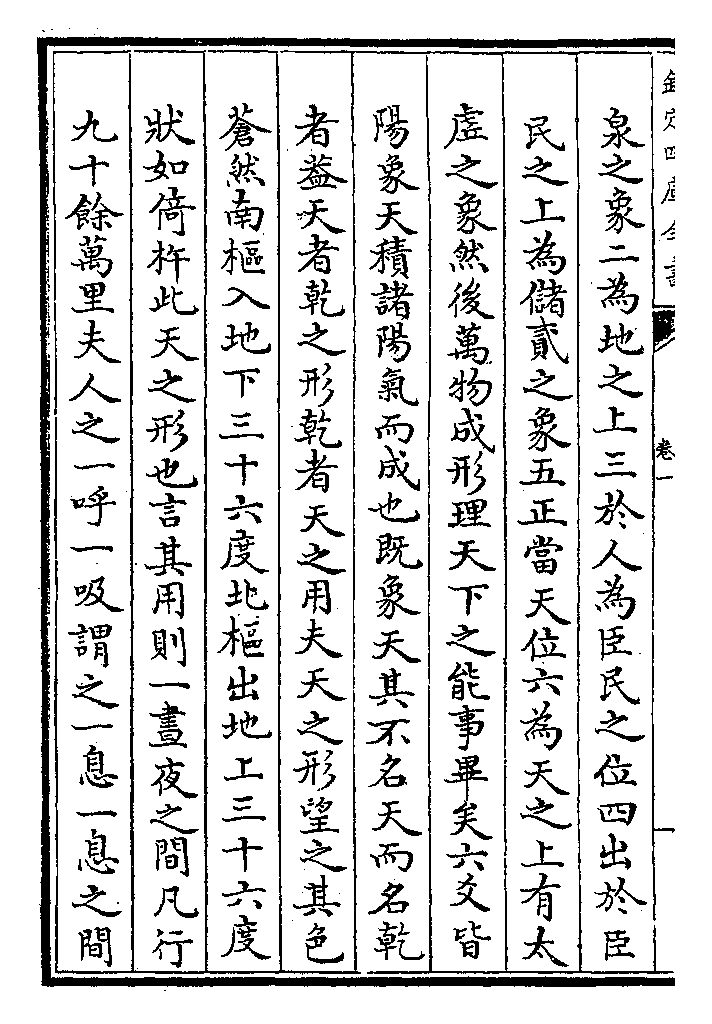 欽定四庫全書
卷一
一
泉之象二為地之上三於人為臣民之位四出於臣
民之上為儲貳之象五正當天位六為天之上有太
虛之象然後萬物成形理天下之能事畢矣六爻皆
陽象天積諸陽氣而成也既象天其不名天而名乾
者葢天者乾之形乾者天之用夫天之形望之其色
蒼然南樞入地下三十六度北樞出地上三十六度
狀如倚杵此天之形也言其用則一晝夜之間凡行
九十餘萬里夫人之一呼一吸謂之一息一息之間